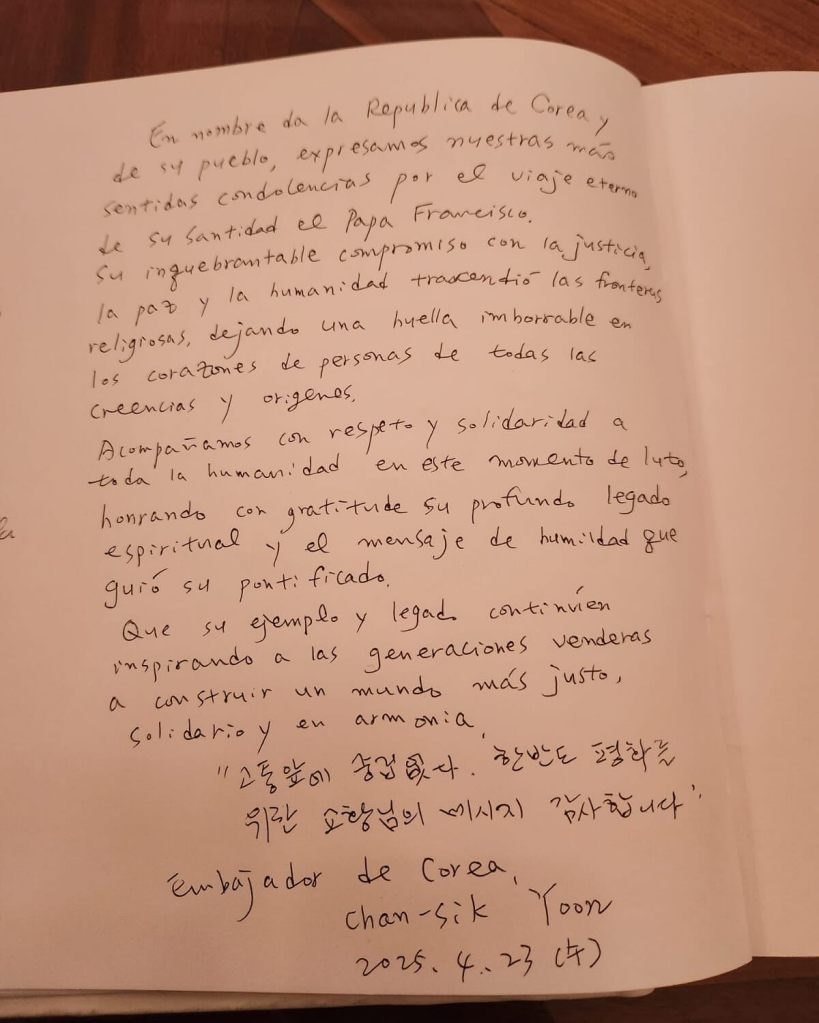 En nombre da la Republica de Corea y
de su pueblo, expresamos nuestras más
sentidas condolencias por el viaje eterno
de su Santidad el Papa Francisco.
Su inquebrantable compromiso con la justicia,
la paz y la humanidad trascendió las fronteras
religiosas, dejando una huella imborrable en
los corazones de personas de todas las
creencias y origenes.
Acompañamos con respeto y solidaridad a
toda la humanidad en este momento de luto,
honrando con gratitude su profundo legado
espiritual y el mensaje de humildad que
guió su pontificado.
Que su ejemplo y legado continúen
inspirando a las generaciones venderas
a construir un mundo más justo,
solidario y en armonia.
"고통앞에 중립없다. 한반도 평화를
위한 교황님의 메시지 감사합니다"
Embajador de Corea,
Chan-sik Yoon
2025. 4. 23 (수)